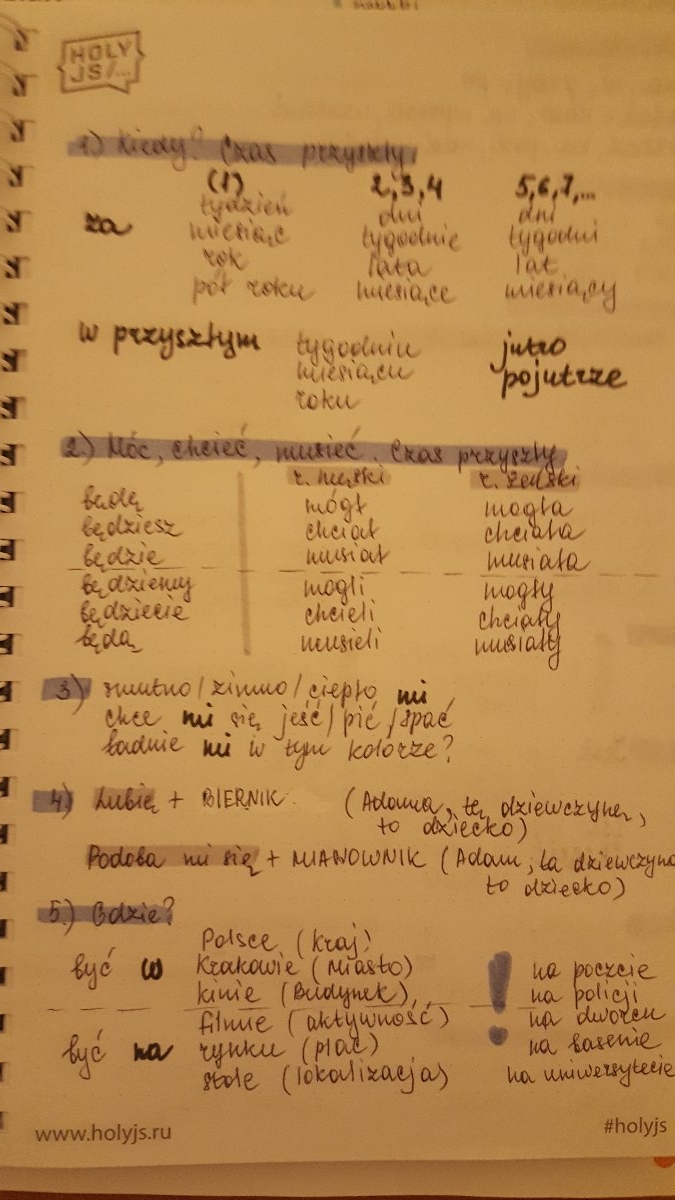 HOLY
JS/...
1) Kiedy? Czas przyszły.
(1) 2,3,4 5,6,7,...
tydzień dni dni
za miesiąc tygodnie tygodni
rok lata lat
pół roku miesiące miesięcy
w przyszłym tygodniu jutro
miesiącu pojutrze
roku
2.) Móc, chcieć, musieć. Czas przyszły
r. męski r. żeński
będę mógł mogła
będziesz chciał chciała
będzie musiał musiała
będziemy mogli mogły
będziecie chcieli chciały
będą musieli musiały
3) smutno/zimno/ciepło mi
chce mi się jeść/pić/spać
ładnie mi w tym kolorze?
4) Lubię + BIERNIK. (Adama, tę dziewczynę,
to dziecko)
Podoba mi się + MIANOWNIK (Adam, ta dziewczyna
to dziecko)
5.) Gdzie?
Polsce (kraj)
być w Krakowie (miasto) ! na poczcie
kinie (Budynek) na policji
filmie (aktywność) na dworcu
być na rynku (plac) na basenie
stole (lokalizacja) na uniwersytecie
www.holyjs.ru #holyjs